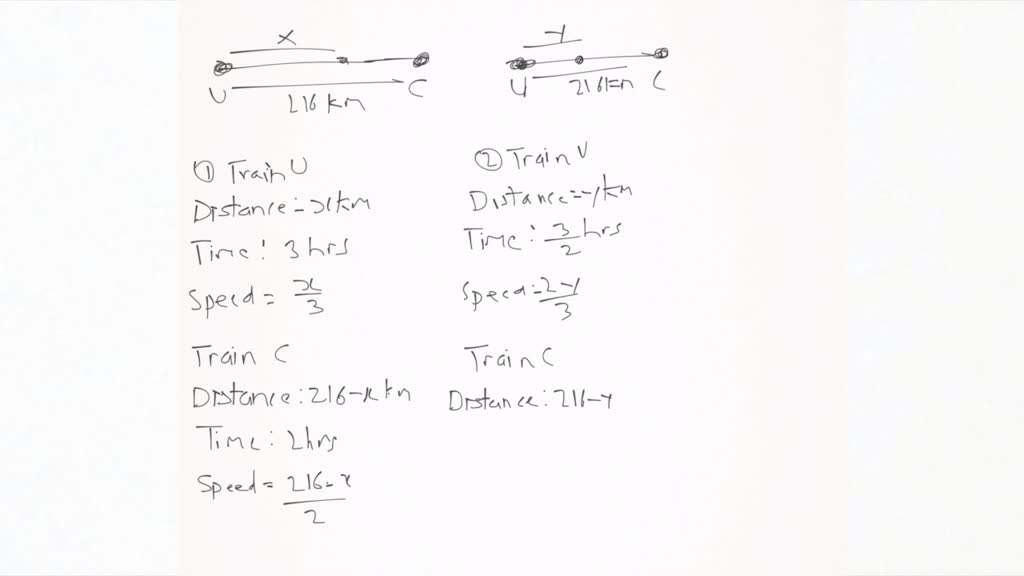 x
U C
216 km
y
U 216km C
① Train U
Distance = x km
Time: 3 hrs
Speed = x/3
Train C
Distance: 216-x km
Time: 2hrs
Speed = 216-x/2
② Train U
Distance = y km
Time: 3/2 hrs
Speed = 2y/3
Train C
Distance: 216-y